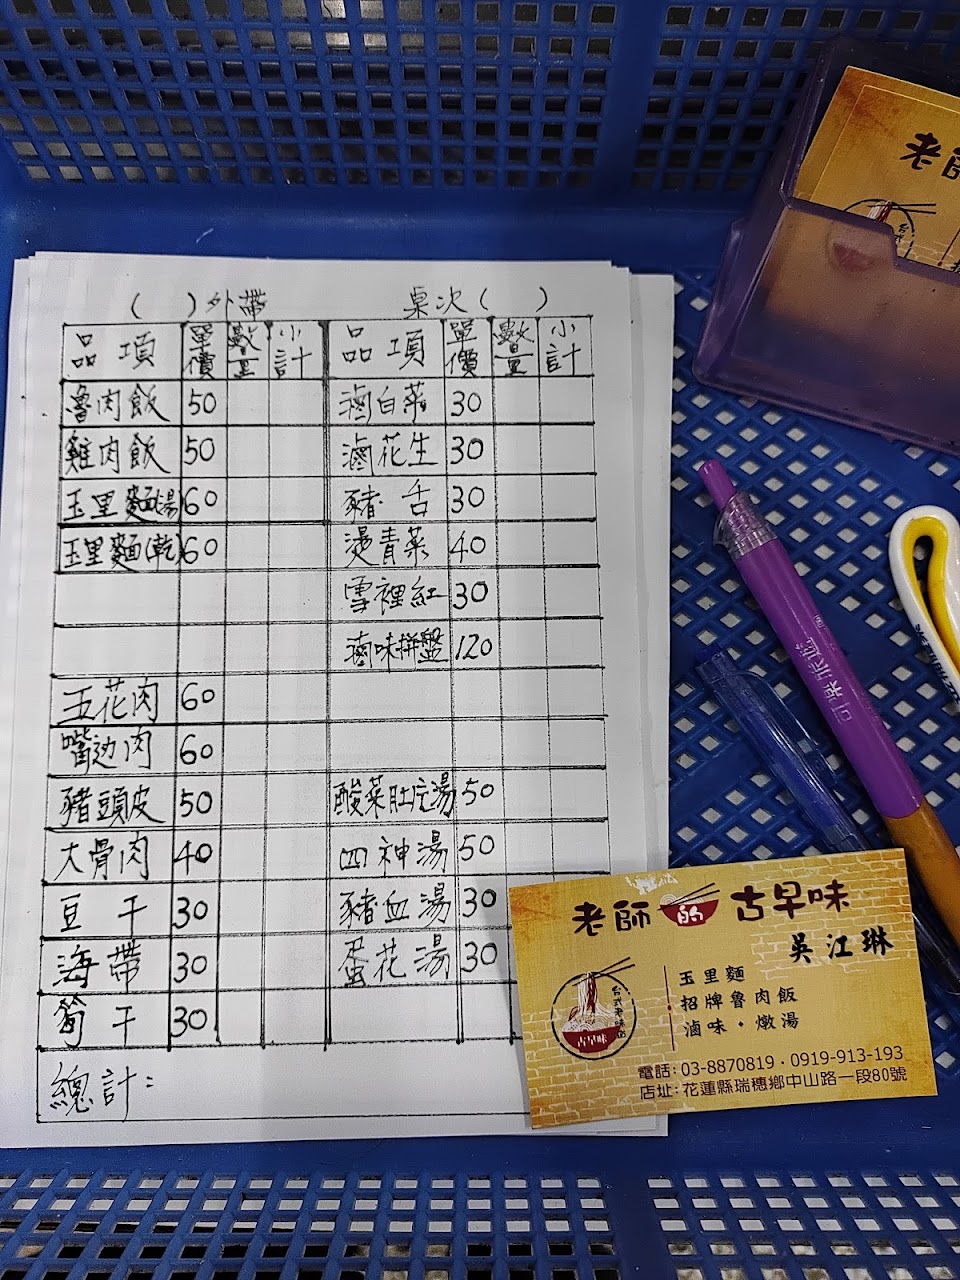 ( )外帶 桌次( )
品項 單價 數量 小計 品項 單價 數量 小計
魯肉飯 50 滷白菜 30
雞肉飯 50 滷花生 30
玉里麵湯 60 豬舌 30
玉里麵(乾) 60 燙青菜 40
雪裡紅 30
滷味拼盤 120
五花肉 60
嘴边肉 60
豬頭皮 50 酸菜肚片湯 50
大骨肉 40 四神湯 50
豆干 30 豬血湯 30
海帶 30 蛋花湯 30
筍干 30
總計:
老師的古早味
吳江琳
玉里麵
招牌魯肉飯
滷味・燉湯
古早味
電話: 03-8870819・0919-913-193
店址: 花蓮縣瑞穗鄉中山路一段80號
老師